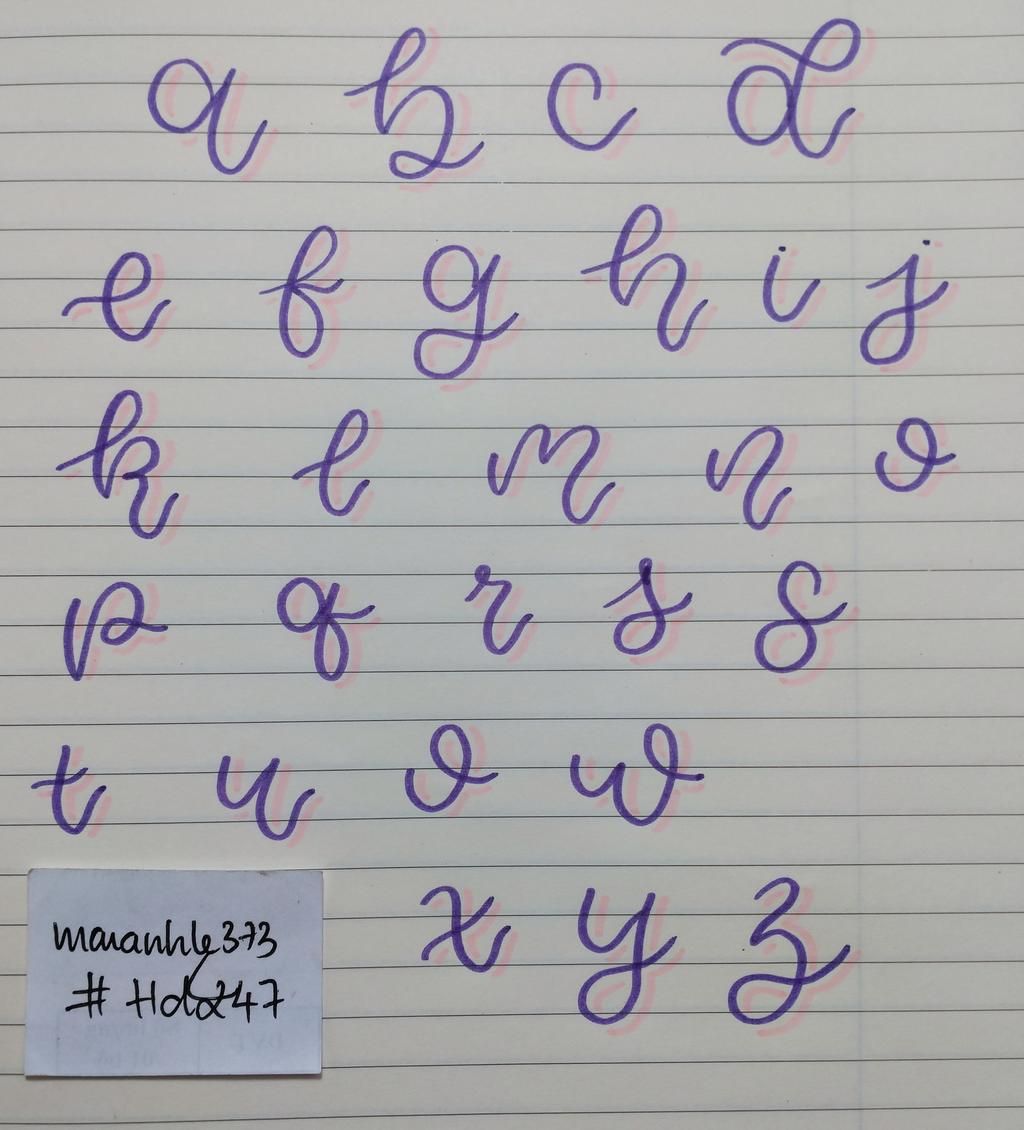 a b c d
e f g h i j
k l m n o
p q r s s
t u v w
x y z
maianhle373
# Hd247